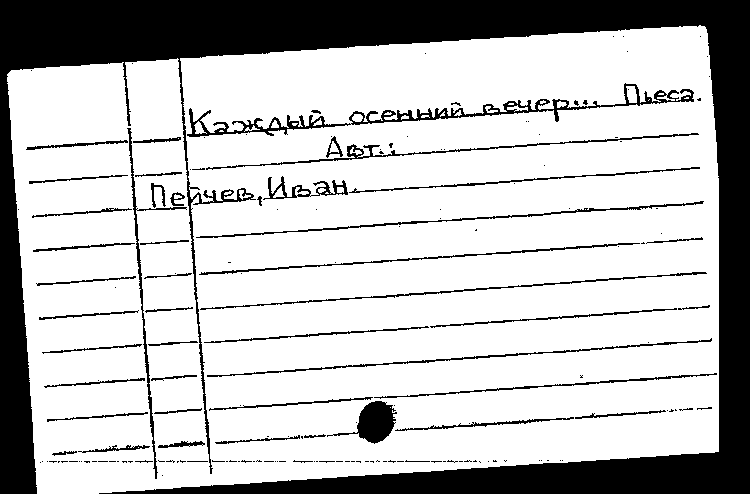 Каждый осенний вечер... Пьеса.
Авт.:
Пейчев, Иван.